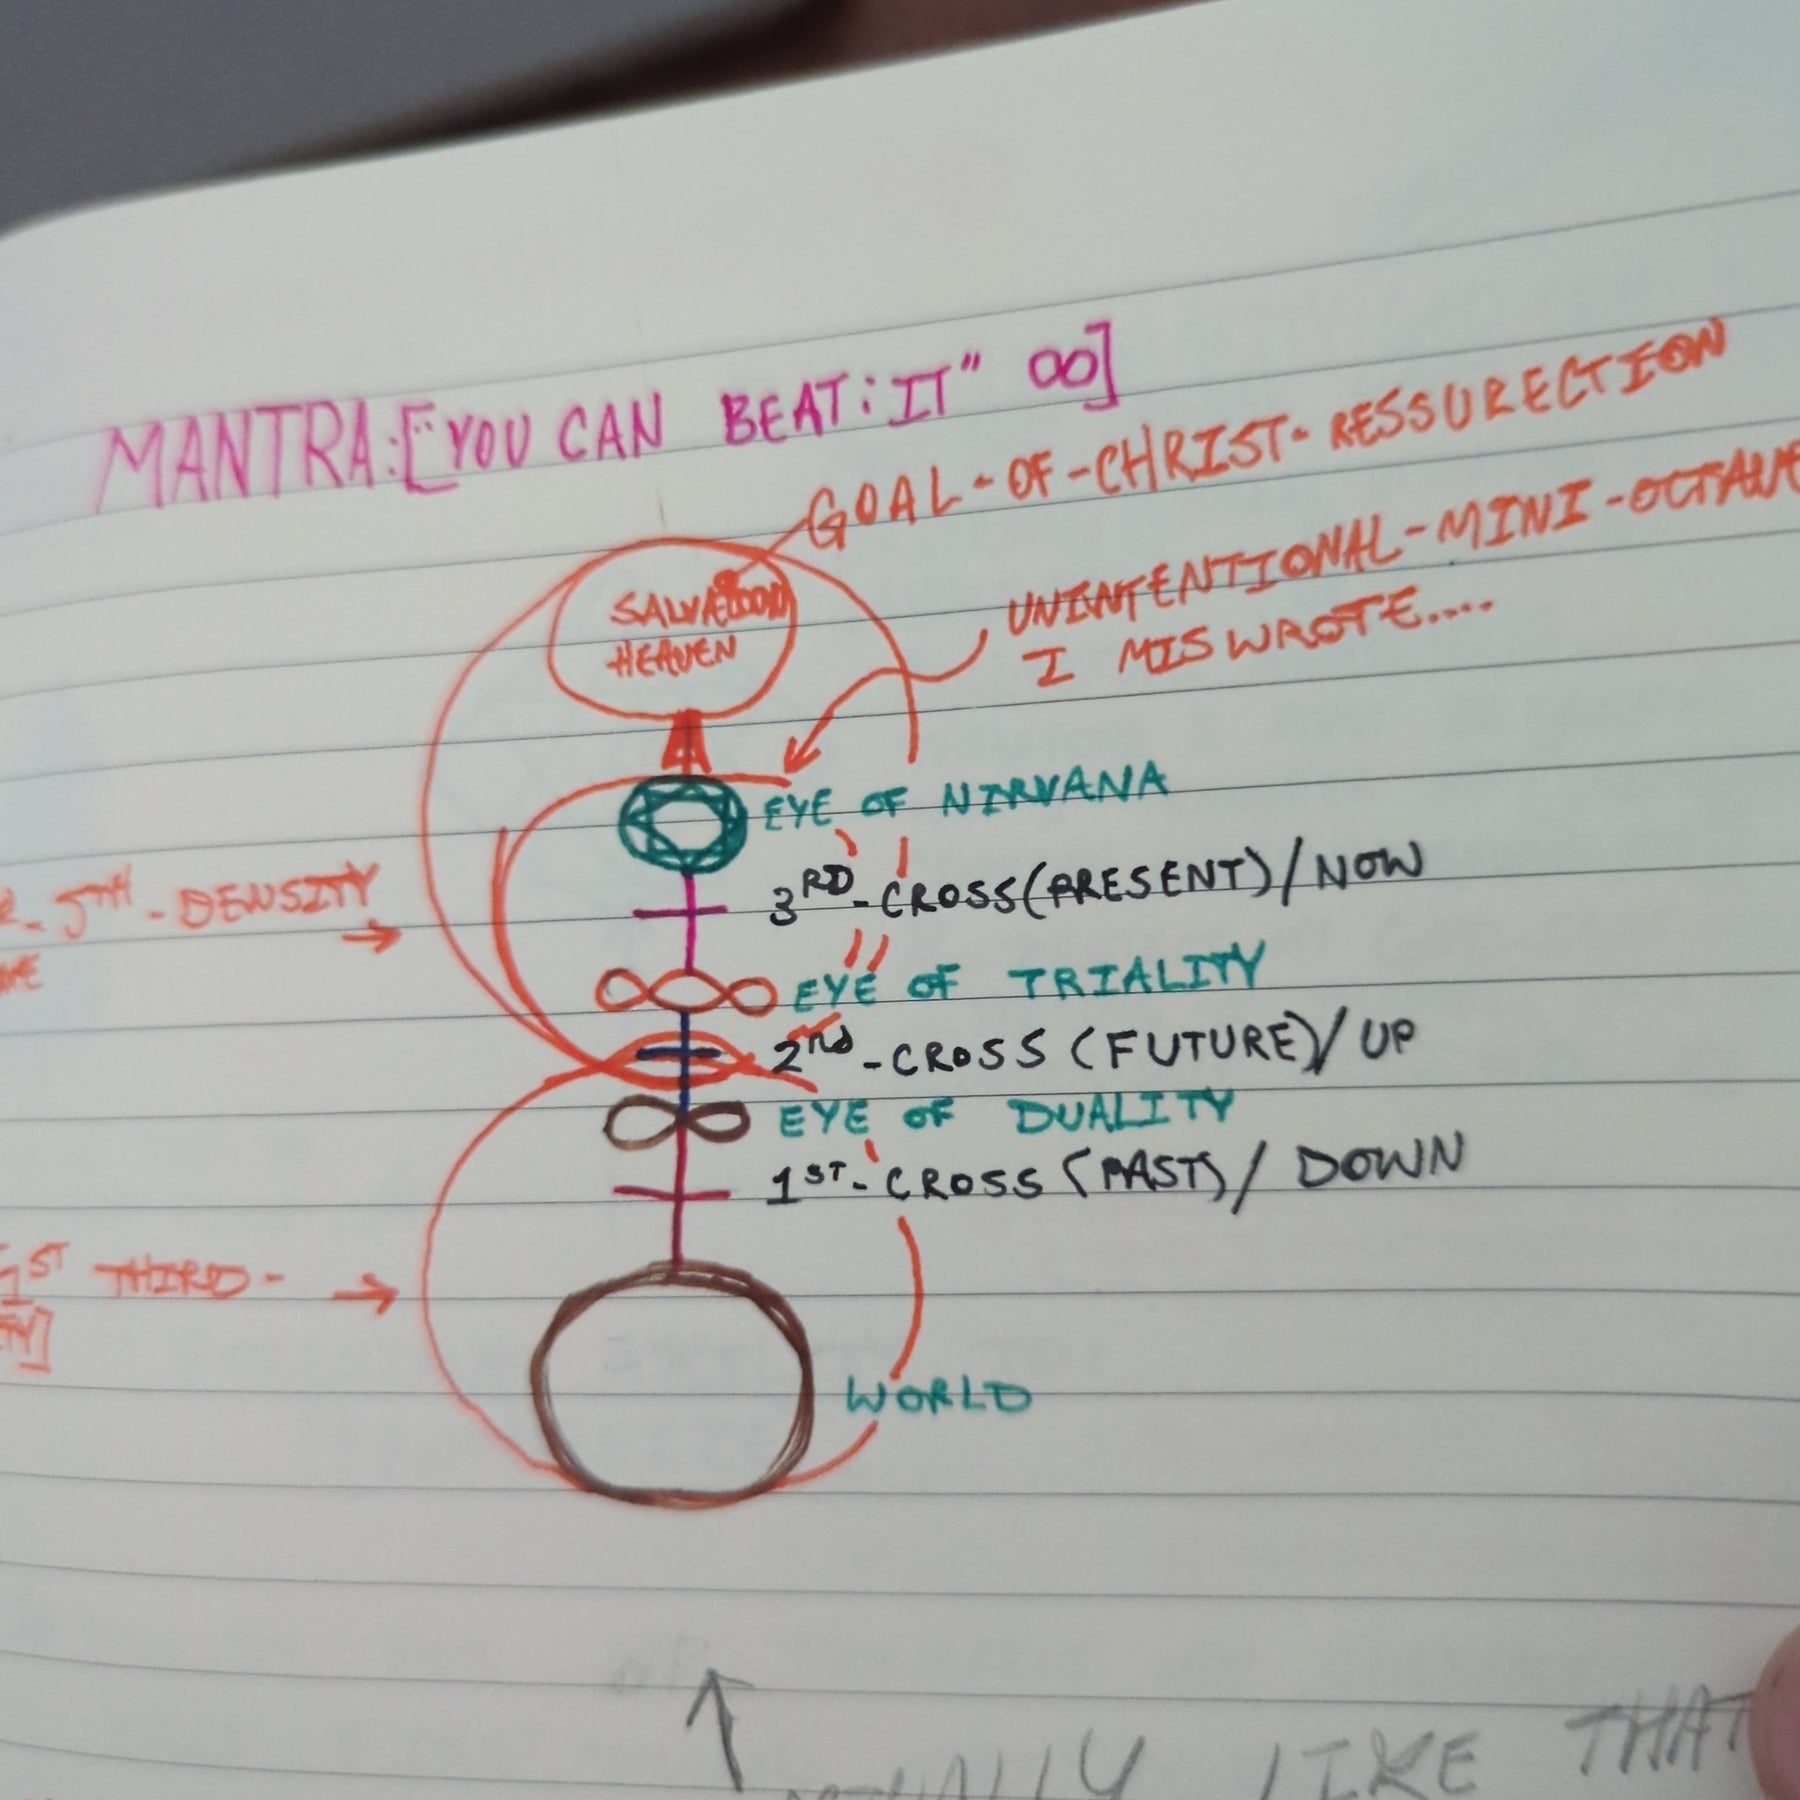 MANTRA:["YOU CAN BEAT:IT" ∞]
GOAL-OF-CHRIST-RESSURECTION
UNINTENTIONAL-MINI-OCTAVE
I MISWROTE....
HEAVEN
EYE OF NIRVANA
5TH-DENSITY
3RD-CROSS(PRESENT)/NOW
EYE OF TRIALITY
2nd-CROSS (FUTURE)/UP
EYE OF DUALITY
1ST-CROSS (PAST)/DOWN
1ST THIRD-
WORLD
LIKE THAT